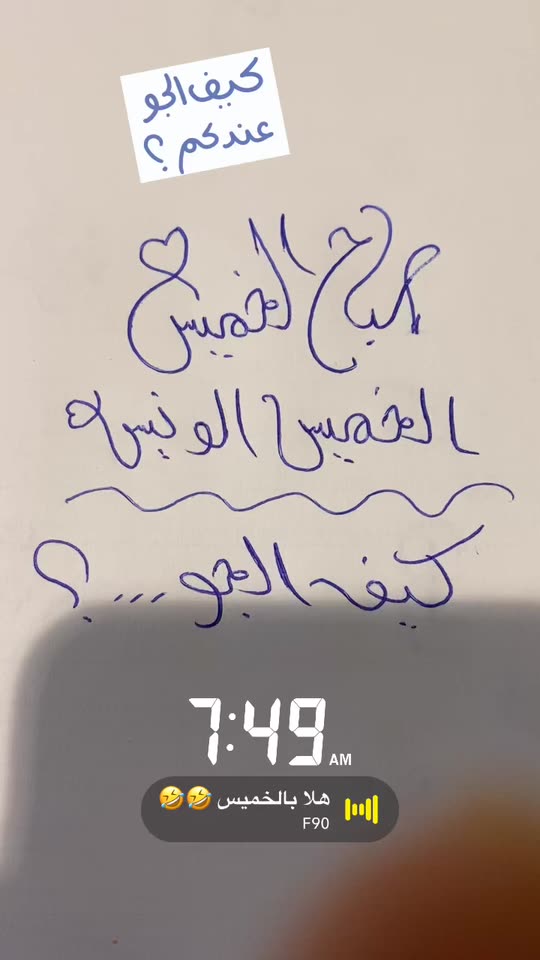 كيف الجو
عندكم ؟
صباح الخميس
الخميس الونيس
كيف الجو...؟
7:49 AM
هلا بالخميس 🤣🤣
F90